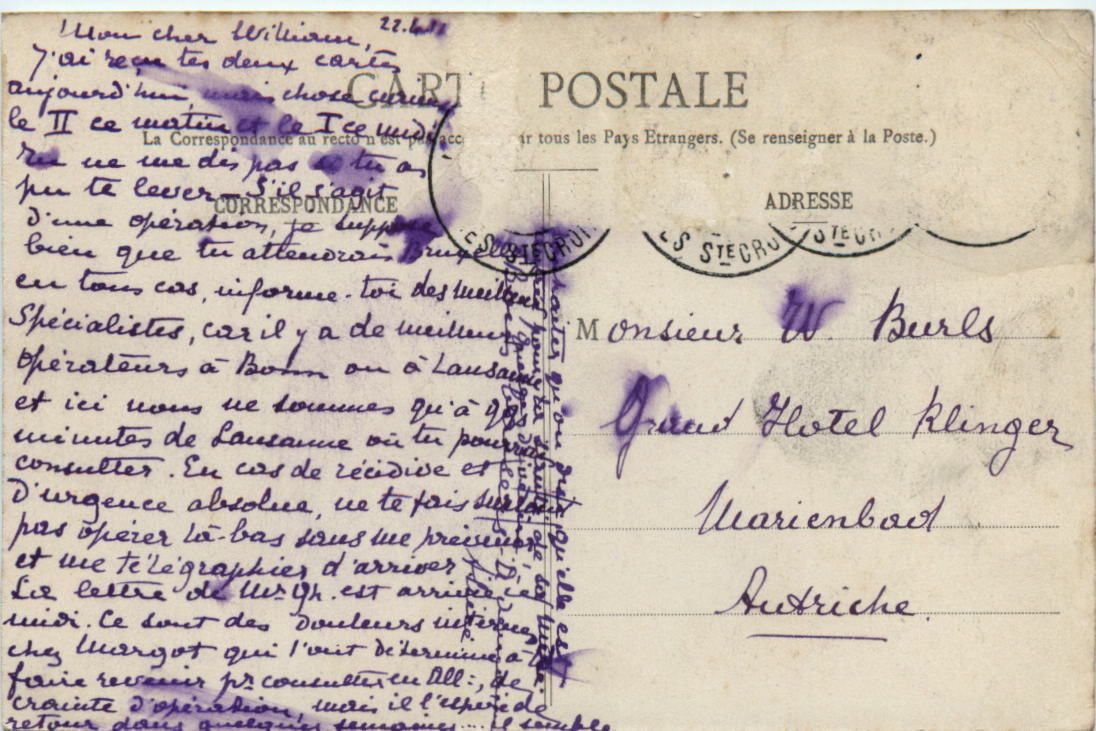 22.6.
Mon cher William,
J'ai reçu tes deux cartes
aujourd'hui, mais chose curieuse
le II ce matin et le I ce midi
Tu ne me dis pas si tu as
pu te lever — S'il s'agit
d'une opération, je suppose
bien que tu attendrais Bruxelles
en tous cas, informe-toi des meilleurs
Spécialistes, car il y a de meilleurs
opérateurs à Bonn ou à Lausanne
et ici nous ne sommes qu'à qqs
minutes de Lausanne où tu pourrais
consulter. En cas de récidive et
d'urgence absolue, ne te fais surtout
pas opérer là-bas sans me prévenir
et me télégraphier d'arriver
La lettre de Mr Gh. est arrivée ce
midi. Ce sont des douleurs internes
chez Margot qui l'ont déterminé à la
faire revenir pr consulter en All:, de
crainte d'opération, mais il l'espère de
retour dans quelques semaines... il semble
CARTE POSTALE
La Correspondance au recto n'est pas acc par tous les Pays Etrangers. (Se renseigner à la Poste.)
CORRESPONDANCE
ADRESSE
ES STE CROI
ES STE CROI
STE CR
Monsieur W. Burls
Grand Hotel Klinger
Marienbad
Autriche